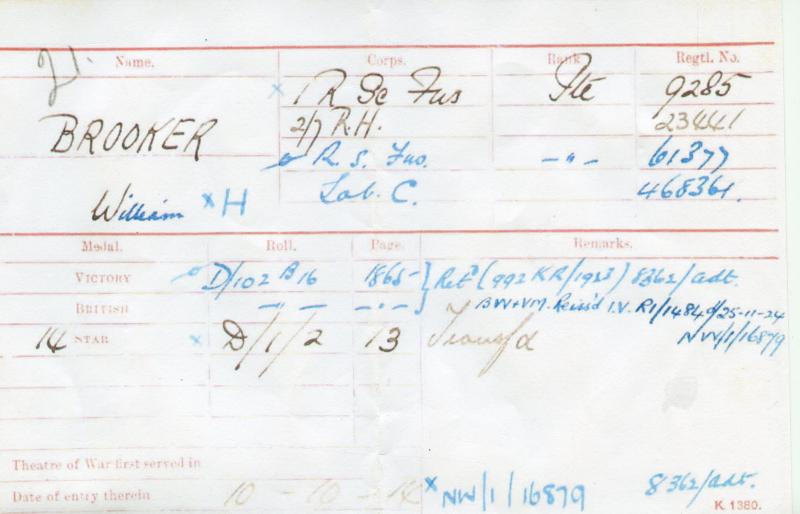 Name. Corps. Rank Regtl. No.
x 1 R Sc Fus Pte 9285
BROOKER 2/7 R.H. 23441
R. S. Fus. -"- 61377
William x H Lab. C. 468361.
Medal. Roll. Page. Remarks.
VICTORY D/102 B16 1865 } Ret^d (992 KR/1923) 8362/adt.
BRITISH -"- -"- BW+VM. Reiss'd I.V. R1/1484 d/25-11-24
14 STAR x D/1/2 13 NW/1/16879
Theatre of War first served in
Date of entry therein 10 - 10 - 14 x NW/1/16879 8362/adt.
K. 1380.